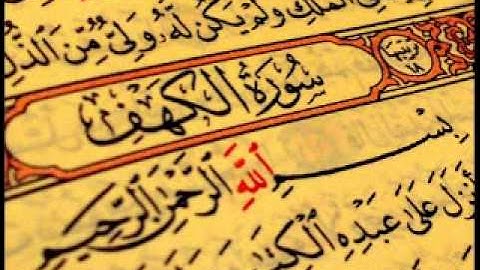 فِى ٱلْمُلْكِ وَلَمْ يَكُن لَّهُۥ وَلِىٌّ مِّنَ ٱلذُّلِّ
سُورَةُ الكَهْفِ
بِسْمِ ٱللَّهِ ٱلرَّحْمَٰنِ ٱلرَّحِيمِ
أَنزَلَ عَلَىٰ عَبْدِهِ ٱلْكِتَٰبَ